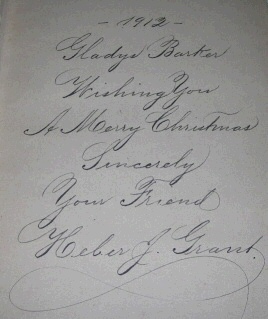 - 1912 -
Gladys Barker
Wishing You
A Merry Christmas
Sincerely
Your Friend
Heber J. Grant.